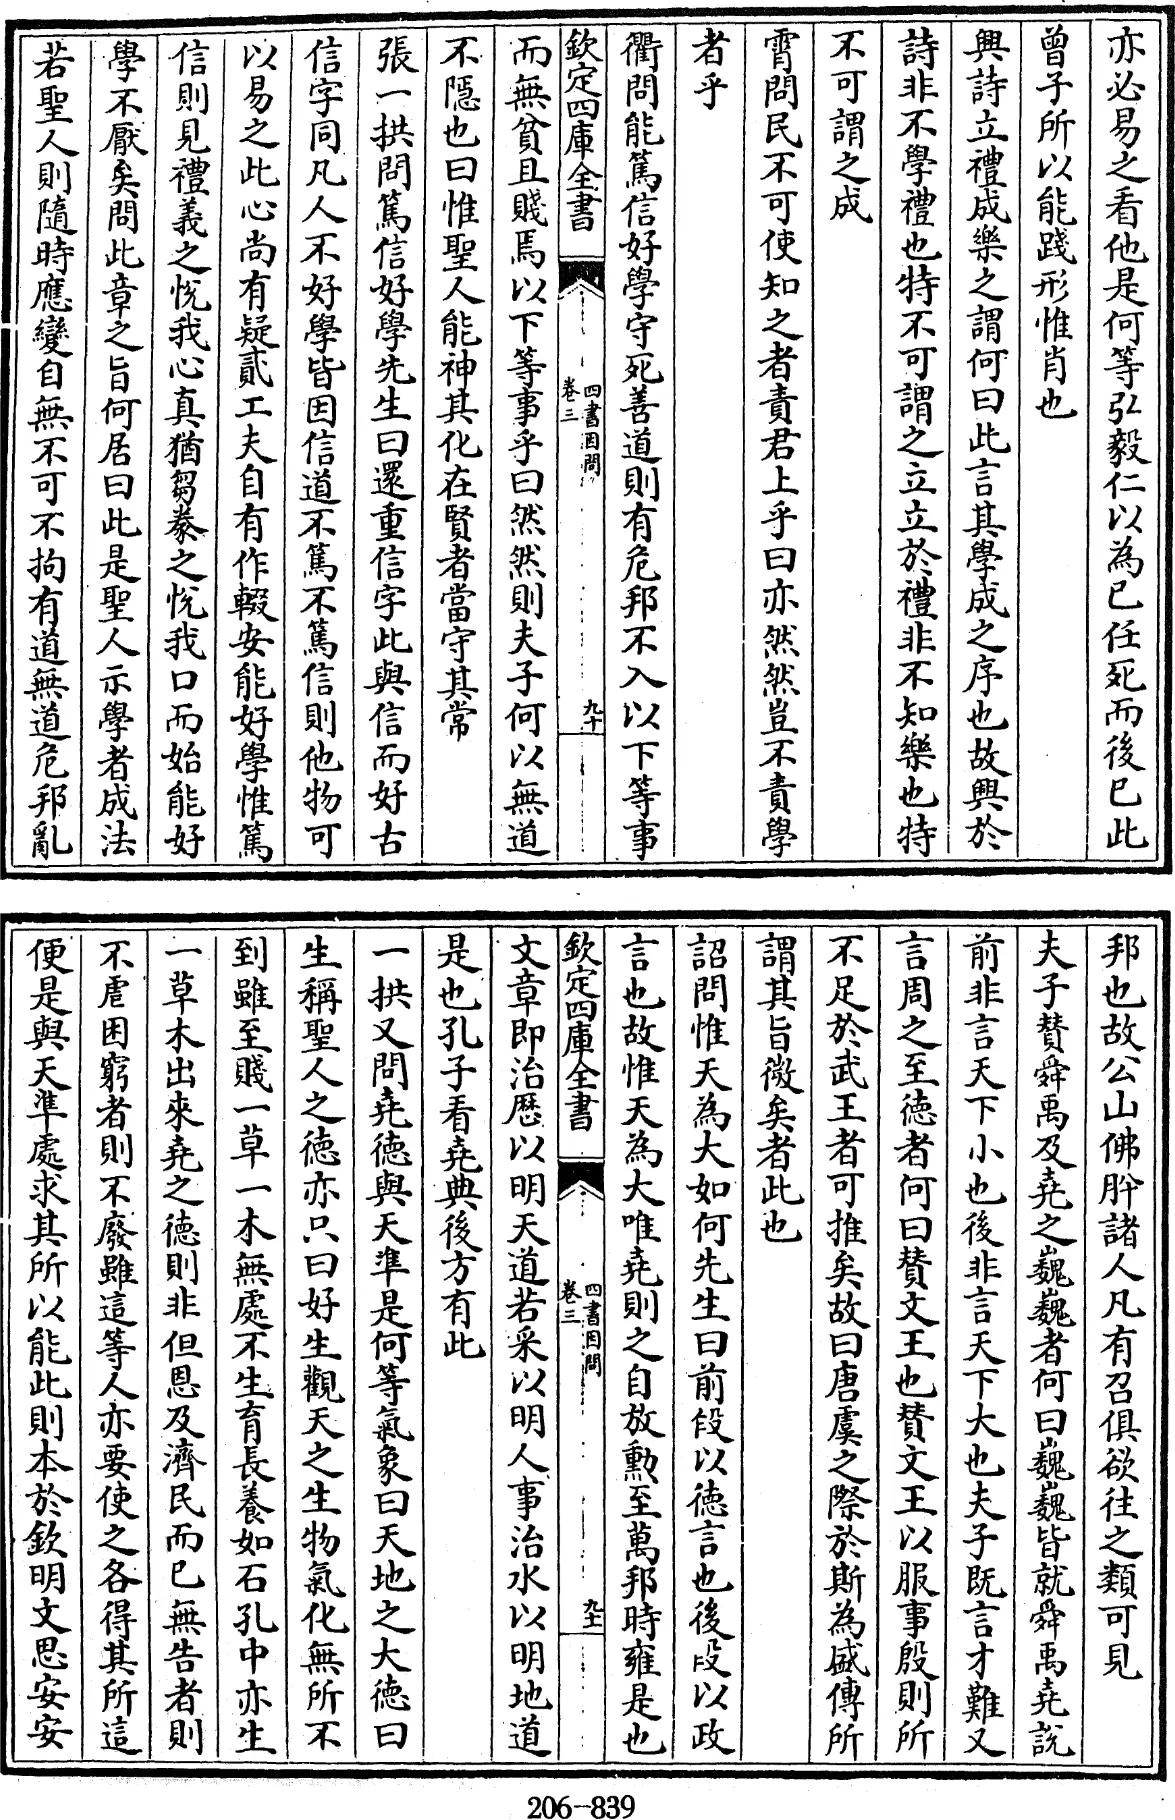 亦必易之看他是何等弘毅仁以為已任死而後已此
曾子所以能踐形惟肖也
興詩立禮成樂之謂何曰此言其學成之序也故興於
詩非不學禮也特不可謂之立立於禮非不知樂也特
不可謂之成
霄問民不可使知之者責君上乎曰亦然然豈不責學
者乎
衢問能篤信好學守死善道則有危邦不入以下等事
欽定四庫全書
四書因問
卷三
九十
而無貧且賤焉以下等事乎曰然然則夫子何以無道
不隱也曰惟聖人能神其化在賢者當守其常
張一拱問篤信好學先生曰還重信字此與信而好古
信字同凡人不好學皆因信道不篤不篤信則他物可
以易之此心尚有疑貳工夫自有作輟安能好學惟篤
信則見禮義之悅我心真猶芻豢之悅我口而始能好
學不厭矣問此章之旨何居曰此是聖人示學者成法
若聖人則隨時應變自無不可不拘有道無道危邦亂
邦也故公山佛肸諸人凡有召俱欲往之類可見
夫子賛舜禹及堯之巍巍者何曰巍巍皆就舜禹堯說
前非言天下小也後非言天下大也夫子既言才難又
言周之至德者何曰賛文王也賛文王以服事殷則所
不足於武王者可推矣故曰唐虞之際於斯為盛傳所
謂其旨微矣者此也
詔問惟天為大如何先生曰前段以德言也後段以政
言也故惟天為大唯堯則之自放勳至萬邦時雍是也
欽定四庫全書
四書因問
卷三
九十一
文章即治歴以明天道若采以明人事治水以明地道
是也孔子看堯典後方有此
一拱又問堯德與天準是何等氣象曰天地之大德曰
生稱聖人之德亦只曰好生觀天之生物氣化無所不
到雖至賤一草一木無處不生育長養如石孔中亦生
一草木出來堯之德則非但恩及濟民而已無告者則
不虐困窮者則不廢雖這等人亦要使之各得其所這
便是與天準處求其所以能此則本於欽明文思安安
206-839